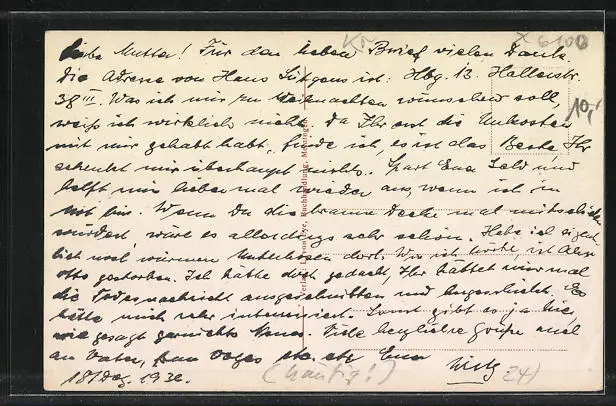 Liebe Mutter! Für den lieben Brief vielen Dank.
Die Adresse von Hans Lütgens ist: Hbg. 13. Hallerstr.
38 III. Was ich mir zu Weihnachten wünschen soll,
weiß ich wirklich nicht. Da Ihr erst die Unkosten
mit mir gehabt habt, finde ich, es ist das Beste, Ihr
schenkt mir überhaupt nichts. Spart Euer Geld und
helft mir lieber mal wieder aus, wenn ich in
Not bin. Wenn Du die braune Decke mal mitschicken
würdest, wäre es allerdings sehr schön. Habe ich eigent-
lich noch wärmere Unterhosen dort. Wie ich hörte, ist
Otto gestorben. Ich hätte doch gedacht, Ihr hättet mir mal
die Todesnachricht ausgeschnitten und beigeschickt. Es
hätte mich sehr interessiert. Sonst gibt es ja hier,
wie gesagt garnichts Neues. Viele herzliche Grüße auch
an Vater, etc. etc. Euer
Willy
18. Dez. 193
X 6100
10,-
24)
Buchhandlung,